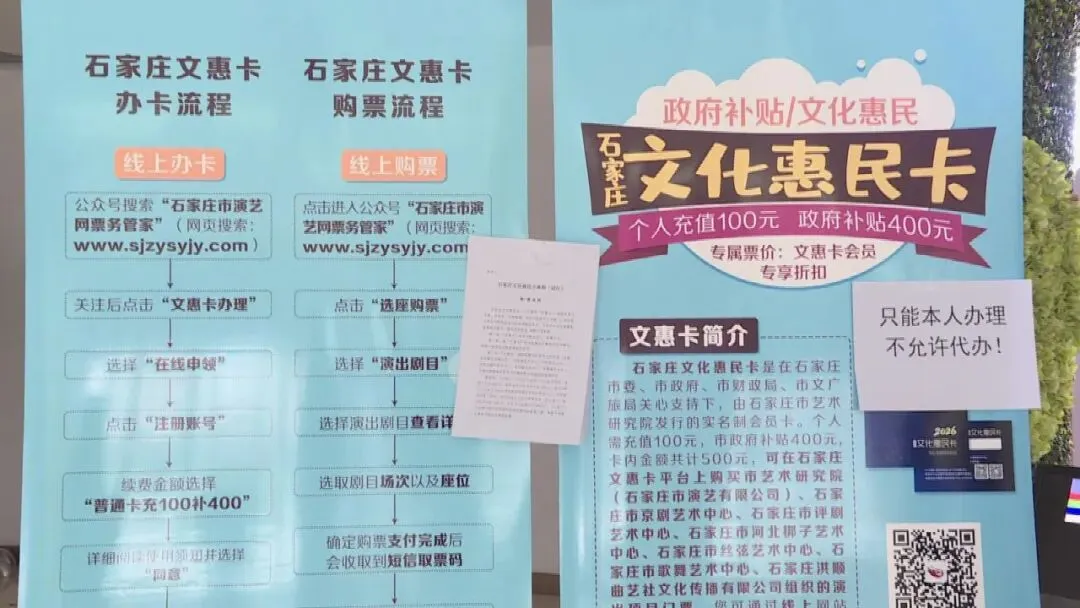 石家庄文惠卡
办卡流程
线上办卡
公众号搜索“石家庄市演艺
网票务管家”（网页搜索：
www.sjzysyjy.com）
关注后点击“文惠卡办理”
选择“在线申领”
点击“注册账号”
续费金额选择
“普通卡充100补400”
详细阅读使用须知并选择
“同意”
石家庄文惠卡
购票流程
线上购票
点击进入公众号“石家庄市演
艺网票务管家”（网页搜索：
www.sjzysyjy.com
点击“选座购票”
选择“演出剧目”
选择演出剧目查看详
选取剧目场次以及座位
确定购票支付完成后
会收取到短信取票码
政府补贴/文化惠民
石家庄
文化惠民卡
个人充值100元 政府补贴400元
专属票价：文惠卡会员
专享折扣
文惠卡简介
石家庄文化惠民卡是在石家庄
市委、市政府、市财政局、市文广
旅局关心支持下，由石家庄市艺术
研究院发行的实名制会员卡。个人
需充值100元，市政府补贴400元，
卡内金额共计500元，可在石家庄
文惠卡平台上购买市艺术研究院
（石家庄市演艺有限公司）、石家
庄市京剧艺术中心、石家庄市评剧
艺术中心、石家庄市河北梆子艺术
中心、石家庄市丝弦艺术中心、石
家庄市歌舞艺术中心、石家庄洪顺
曲艺社文化传播有限公司组织的演
出项目门票。您可通过线上网站
只能本人办理
不允许代办！
2026
文化惠民卡